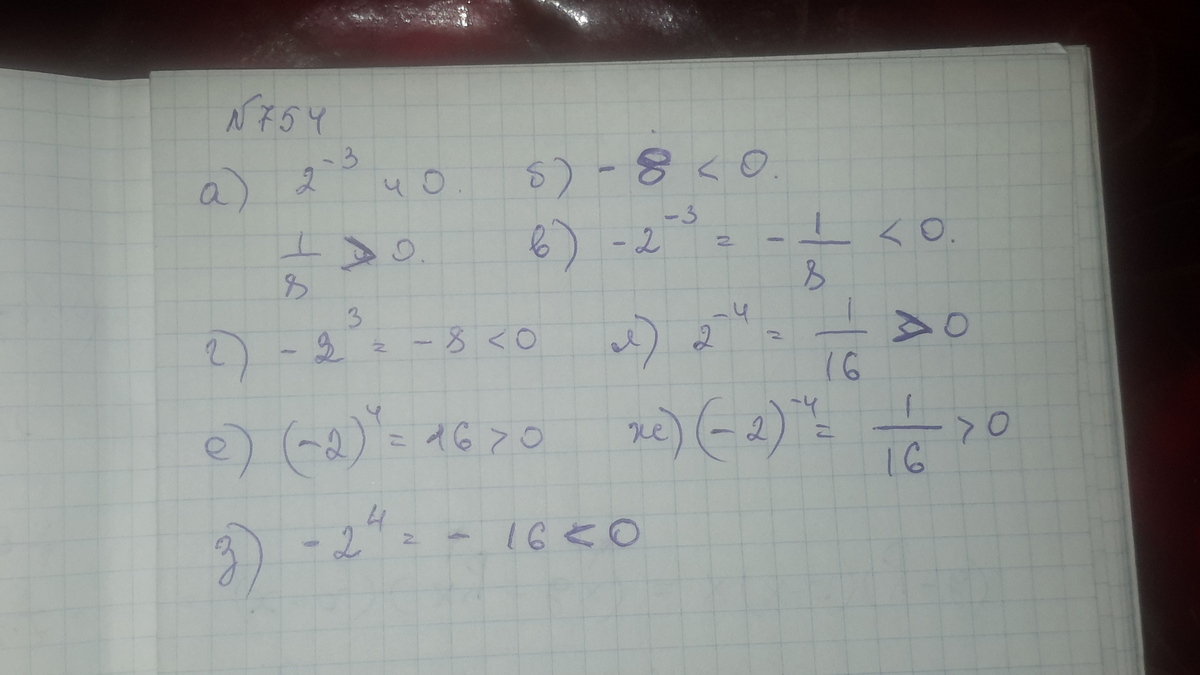 №754
а) 2⁻³ и 0. б) - 8 < 0.
1/8 > 0. в) -2⁻³ = - 1/8 < 0.
г) -2³ = - 8 < 0 д) 2⁻⁴ = 1/16 > 0
е) (-2)⁴ = 16 > 0 ж) (-2)⁻⁴ = 1/16 > 0
з) -2⁴ = - 16 < 0